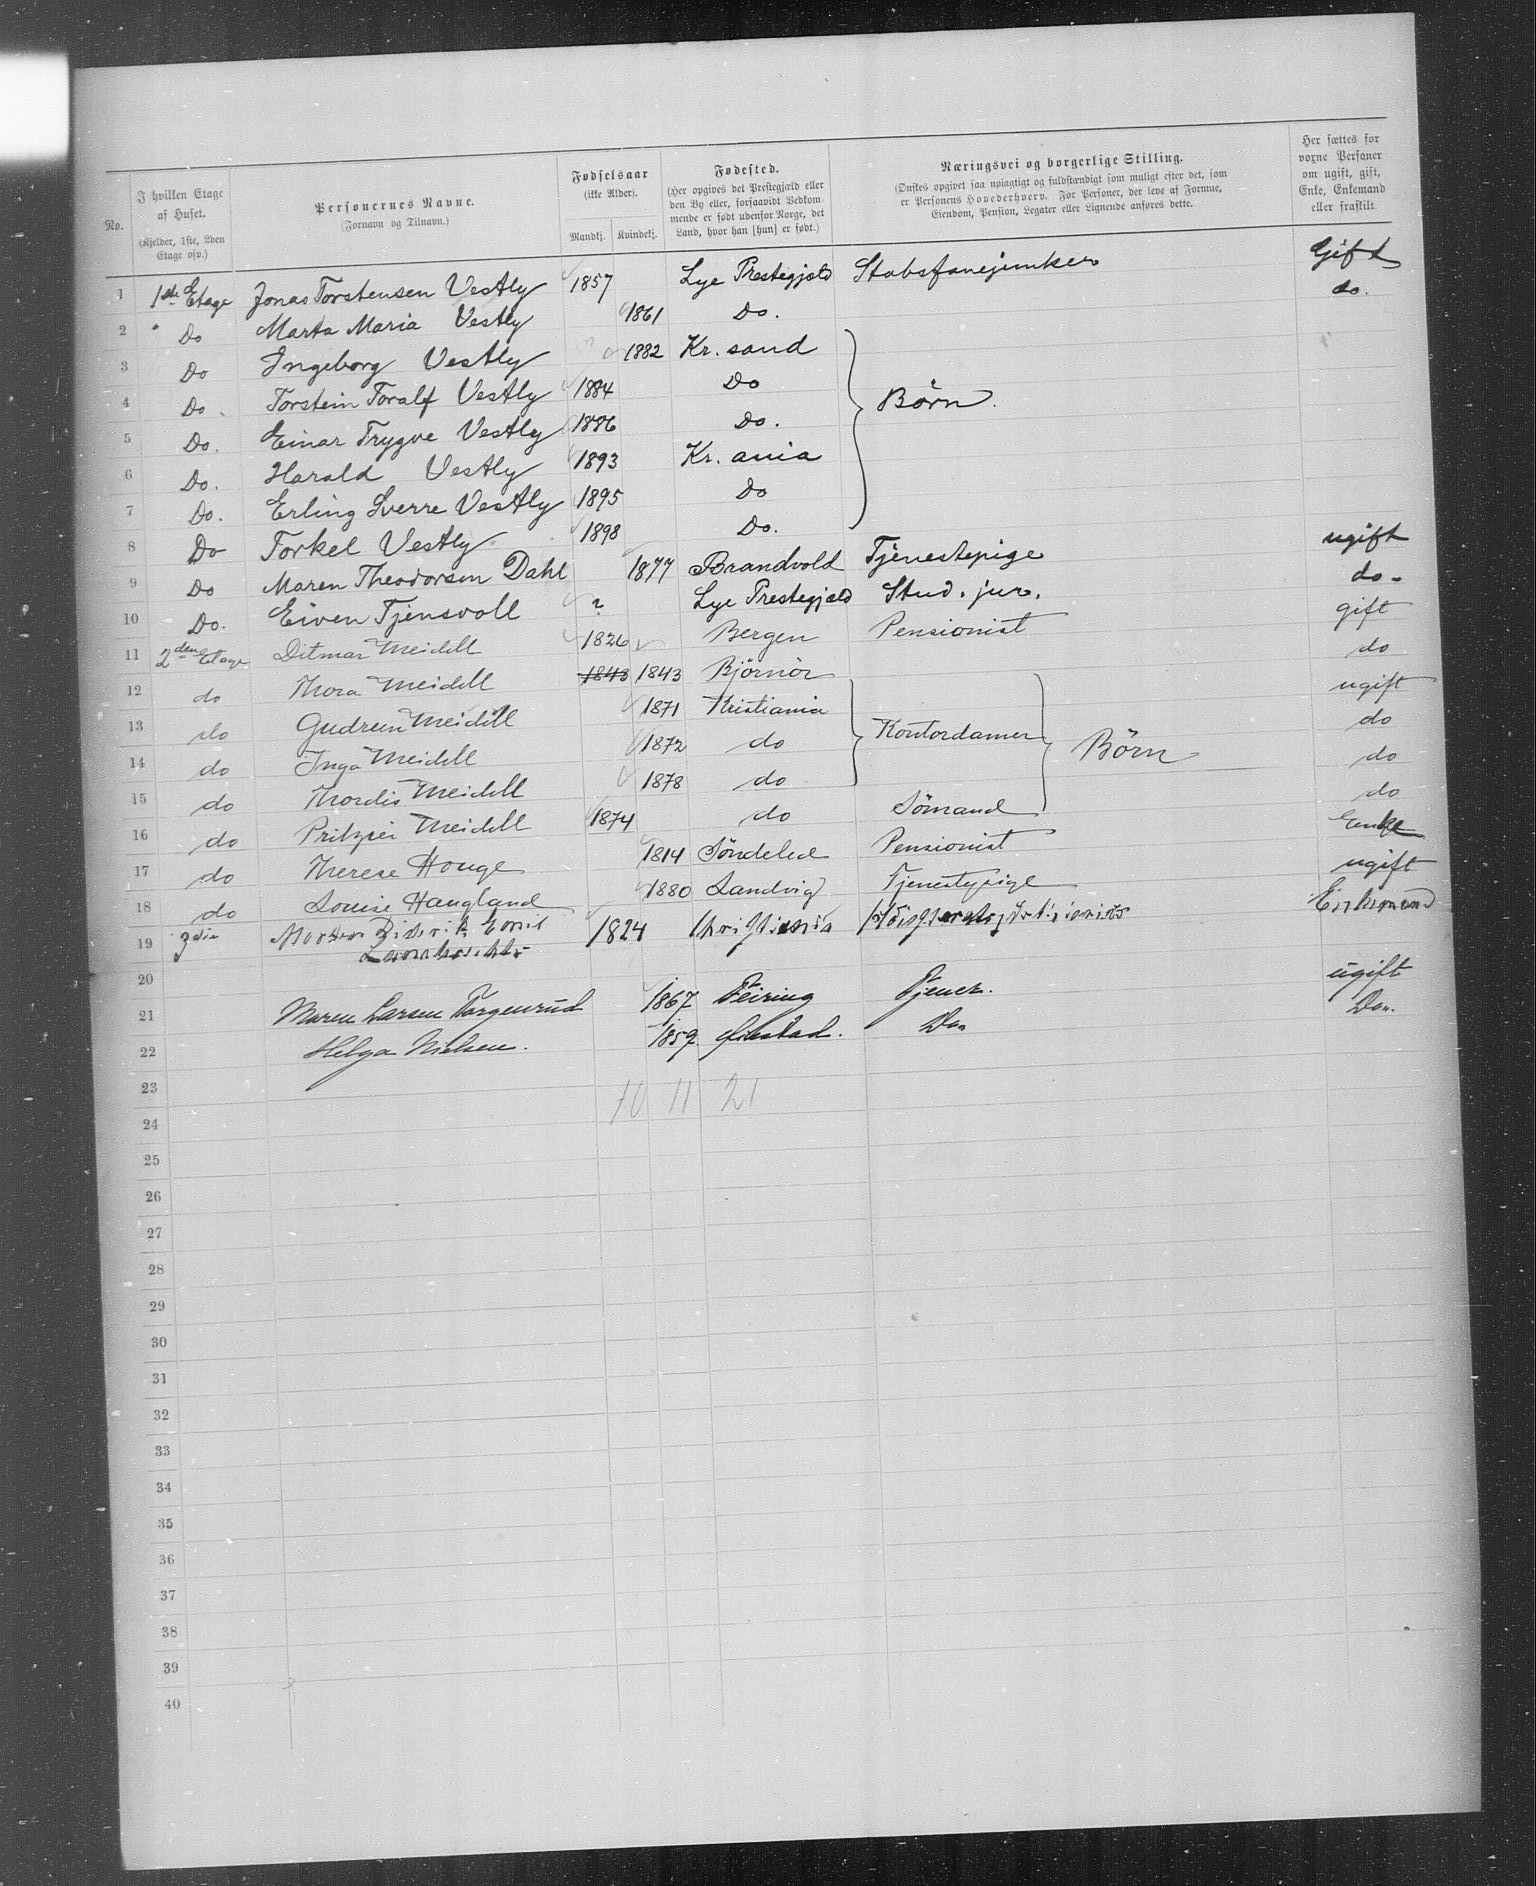 No.
I hvilken Etage af Huset.
(Kjelder, 1ste, 2den Etage osv.)
Personernes Navne.
(Fornavn og Tilnavn.)
Fødselsaar
(ikke Alder).
Mandkj. Kvindekj.
Fødested.
(Her opgives det Prestegjæld eller
den By eller, forsaavidt Vedkom-
mende er født udenfor Norge, det
Land, hvor han [hun] er født.)
Næringsvei og borgerlige Stilling.
(Ønskes opgivet saa nøiagtigt og fuldstændigt som muligt efter det, som
er Personens Hovederhverv. For Personer, der leve af Formue,
Eiendom, Pension, Legater eller Lignende anføres dette.
Her sættes for
voxne Personer
om ugift, gift,
Enke, Enkemand
eller fraskilt
1 1ste Etage Jonas Torstensen Vestly 1857 Lye Prestegjæld Stabsfanejunker Gift
2 Do Marta Maria Vestly 1861 Do. do.
3 Do Ingeborg Vestly 1882 Kr. sand
4 Do. Torstein Toralf Vestly 1884 Do Børn.
5 Do. Einar Trygve Vestly 1886 Do.
6 Do. Harald Vestly 1893 Kr. ania
7 Do. Erling Sverre Vestly 1895 Do
8 Do Torkel Vestly 1898 Do.
9 Do Maren Theodorsen Dahl 1877 Brandvold Tjenestepige ugift
10 Do. Eiven Tjensvoll ? Lye Prestegjæld Stud. jur. do.
11 2den Etage Ditmar Meidell 1826 Bergen Pensionist gift
12 do Thora Meidell 1843 1843 Bjørnör do
13 do Gudrun Meidell 1871 Kristiania Kontordamer Börn ugift
14 do Inga Meidell 1872 do do
15 do Thordis Meidell 1878 do do
16 do Meidell 1874 do Sömand do
17 do Therese Houge 1814 Söndeled Pensionist Enke
18 do Louise Haugland 1880 Landvig Tjenestepige ugift
19 3die Morten Emil
Lambrechts 1824 Christiania Enkemand
20
21 Maren Larsen 1867 Feiring Tjener. ugift
22 Helga Nielsen. 1859 Do. Do.
23
10 11 21
24
25
26
27
28
29
30
31
32
33
34
35
36
37
38
39
40